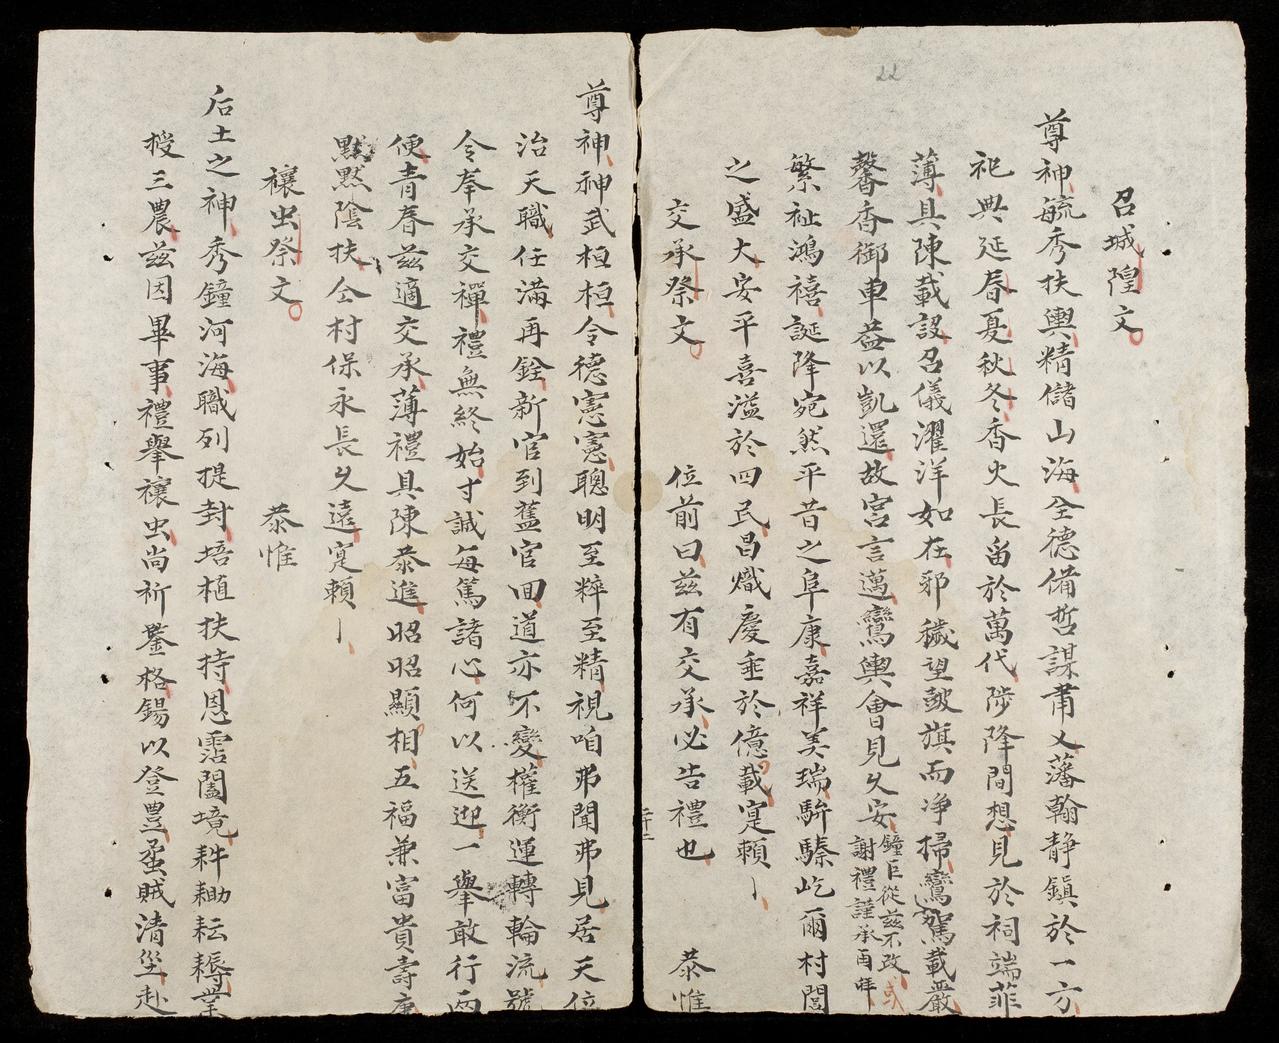 22
召城隍文
尊神毓秀扶輿精儲山海全德備哲謀肅乂藩翰静鎮於一方
祀典延春夏秋冬香火長留於萬代陟降間想見於祠端菲
薄具陳載設召儀濯洋如在邪穢望皷旗而净掃鸞駕載嚴
馨香御車益以凱還故宮言邁鸞輿會見久安鐘巨從茲不改或
謝禮謹承甬拜
繁祉鴻禧誕降宛然平昔之阜康嘉祥美瑞駢臻屹爾村閭
之盛大安平喜溢於四民昌熾慶垂於億載寔賴
交承祭文 位前曰茲有交承必告禮也 恭惟
二十二
尊神神武桓桓令德憲憲聰明至粹至精視咱弗聞弗見居天位
治天職任滿再銓新官到舊官回道亦不變權衡運轉輪流號
令奉承交禪禮無終始寸誠每篤諸心何以送迎一舉敢行兩
便青春茲適交承薄禮具陳恭進昭昭顯相五福兼富貴壽康
默默陰扶仝村保永長久遠寔賴
禳虫祭文 恭惟
后土之神秀鐘河海職列提封培植扶持恩霑闔境耕耡耘耨業
授三農茲因畢事禮舉禳虫尚祈鑒格錫以登豐蟊賊清坐赴